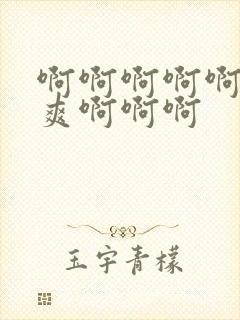 啊啊啊啊啊
爽啊啊啊
玉宇青檬